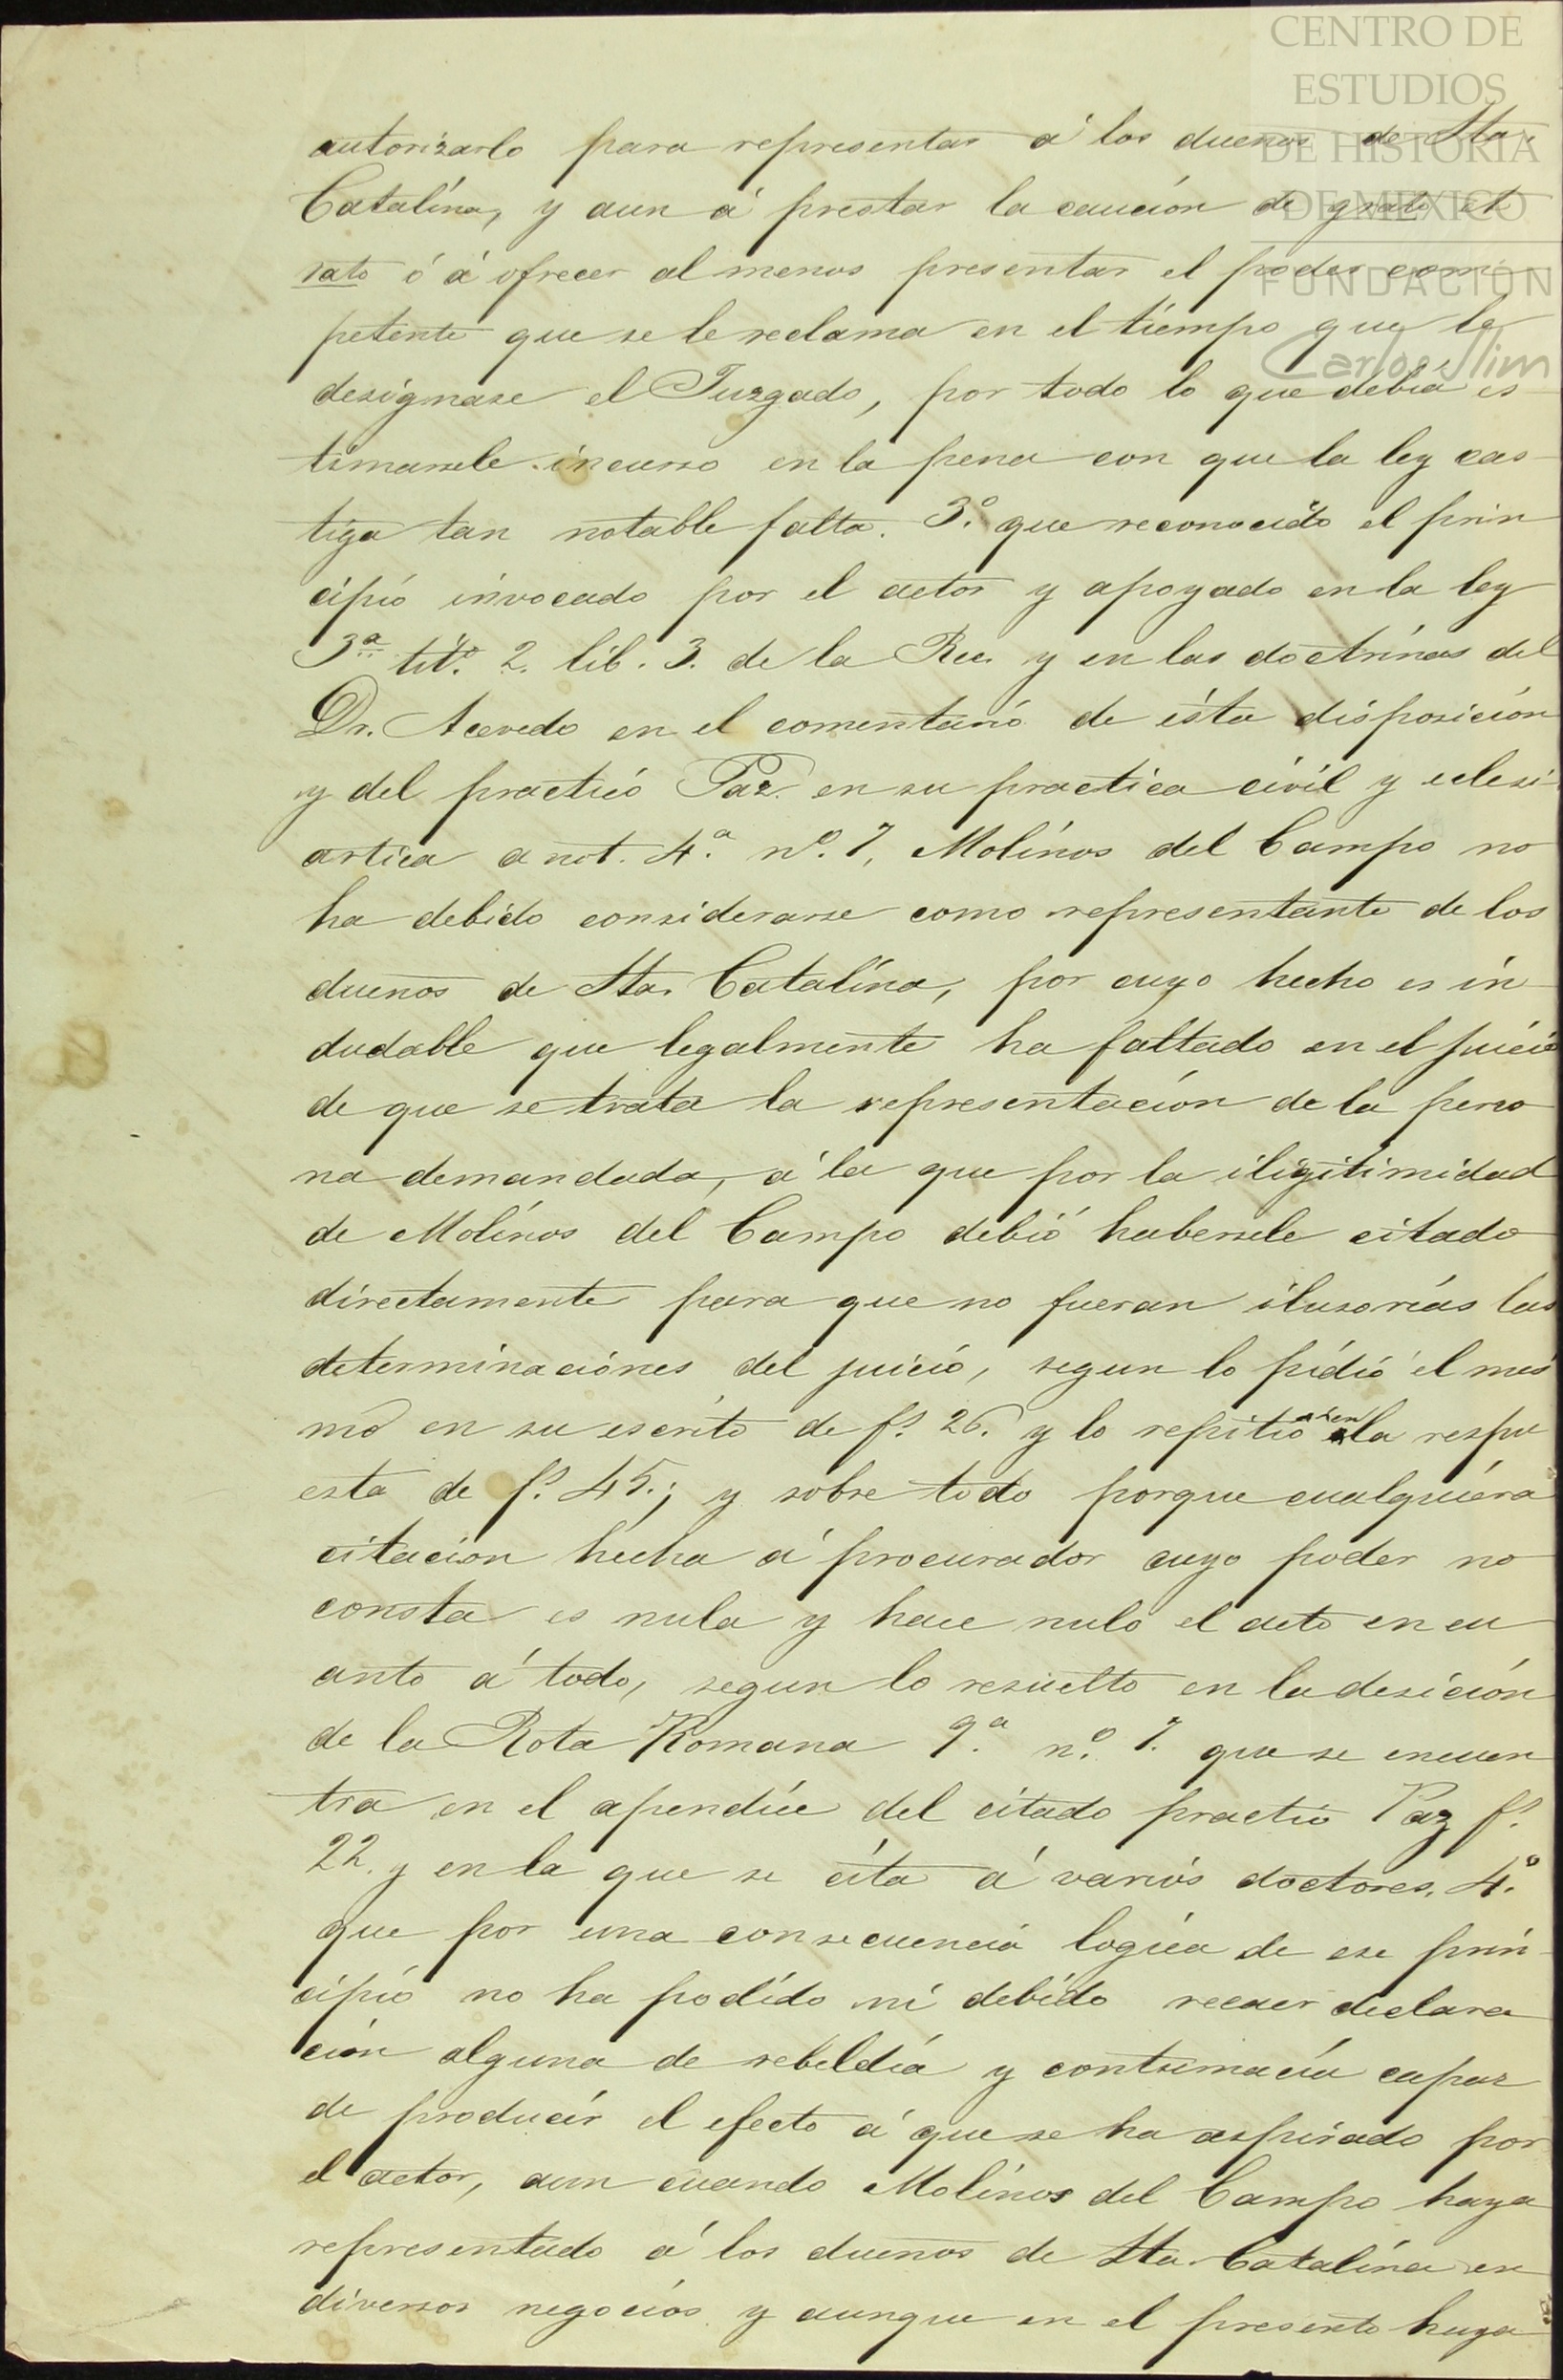 CENTRO DE
ESTUDIOS
DE HISTORIA
DE MEXICO
FUNDACIÓN
Carlos Slim
autorizarlo para representar á los dueños de Sta.
Catalina, y aun á prestar la caución de grato et
rato ó á ofrecer al menos presentar el poder com-
petente que se le reclama en el tiempo que le
designase el Juzgado, por todo lo que debia es-
timarsele incurso en la pena con que la ley cas-
tiga tan notable falta. 3.º que reconocido el prin
cipio invocado por el actor y apoyado en la ley
3.ª tit.º 2. lib. 3. de la Rec. y en las doctrinas del
Dr. Acevedo en el comentario de ésta disposición
y del practico Paz. en su practica civil y eclesi-
astica anot. 4.ª nº. 7, Molinos del Campo no
ha debido considerarse como representante de los
dueños de Sta. Catalina, por cuyo hecho es in-
dudable que legalmente ha faltado en el juicio
de que se trata la representación de la perso
na demandada, á la que por la iligitimidad
de Molinos del Campo debió habersele citado
directamente para que no fueran ilusorias las
determinaciones del juicio, segun lo pidió el mis
mo en su escrito de f.s 26. y lo repitio en la respu
esta de f.s 45.; y sobre todo porque cualquiera
citacion hecha á procurador cuyo poder no
consta es nula y hace nulo el acto en cu
anto á todo, segun lo resuelto en la desición
de la Rota Romana 9.ª n.º 7. que se encuen
tra en el apendice del citado practio Paz f.s
22. y en la que se cita á varios doctores. 4.º
que por una consecuencia logica de ese prin-
cipio no ha podido ni debido recaer declara
ción alguna de rebeldía y contumacia capaz
de producir el efecto á que se ha aspirado por
el actor, aun cuando Molinos del Campo haya
representado á los dueños de Sta. Catalina en
diversos negocios y aunque en el presente haya